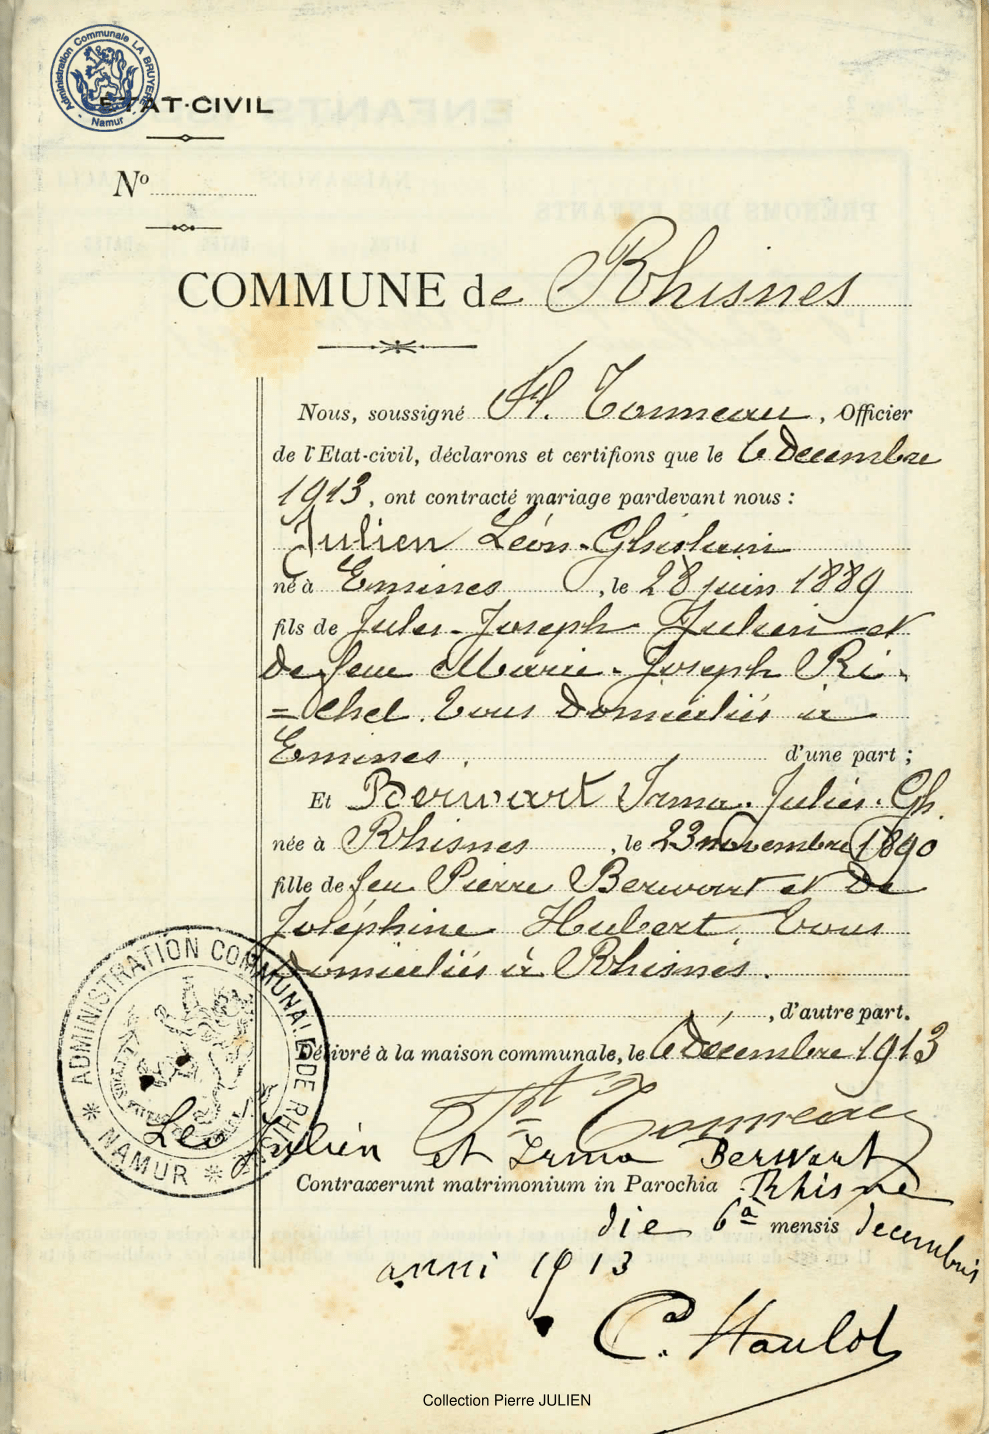 Administration Communale LA BRUYERE - Namur -
ETAT-CIVIL
Nº
COMMUNE de Rhisnes
Nous, soussigné H. Tonneau, Officier
de l'Etat-civil, déclarons et certifions que le 6 Decembre
1913, ont contracté mariage pardevant nous :
Julien Léon-Ghislain
né à Emines, le 28 juin 1889
fils de Jules-Joseph Julien et
de feue Marie-Joseph Ri-
=chel. Tous domiciliés à
Emines. d'une part ;
Et Berwart Irma-Julie-Gh.
née à Rhisnes, le 23 novembre 1890
fille de feu Pierre Berwart et de
Joséphine Hubert, tous
domiciliés à Rhisnes.
, d'autre part.
Délivré à la maison communale, le 6 décembre 1913
Tonneau
ADMINISTRATION COMMUNALE DE RHISNES
* NAMUR *
Léo Julien et Irma Berwart
Contraxerunt matrimonium in Parochia Rhisne
die 6a mensis decembris
anni 1913
C. Haulot
Collection Pierre JULIEN